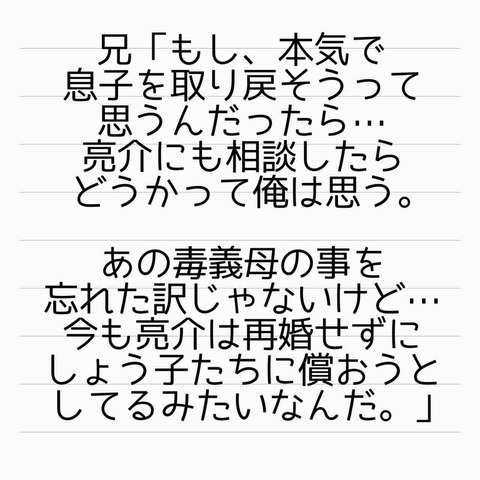 兄「もし、本気で
息子を取り戻そうって
思うんだったら…
亮介にも相談したら
どうかって俺は思う。
あの毒義母の事を
忘れた訳じゃないけど…
今も亮介は再婚せずに
しょう子たちに償おうと
してるみたいなんだ。」